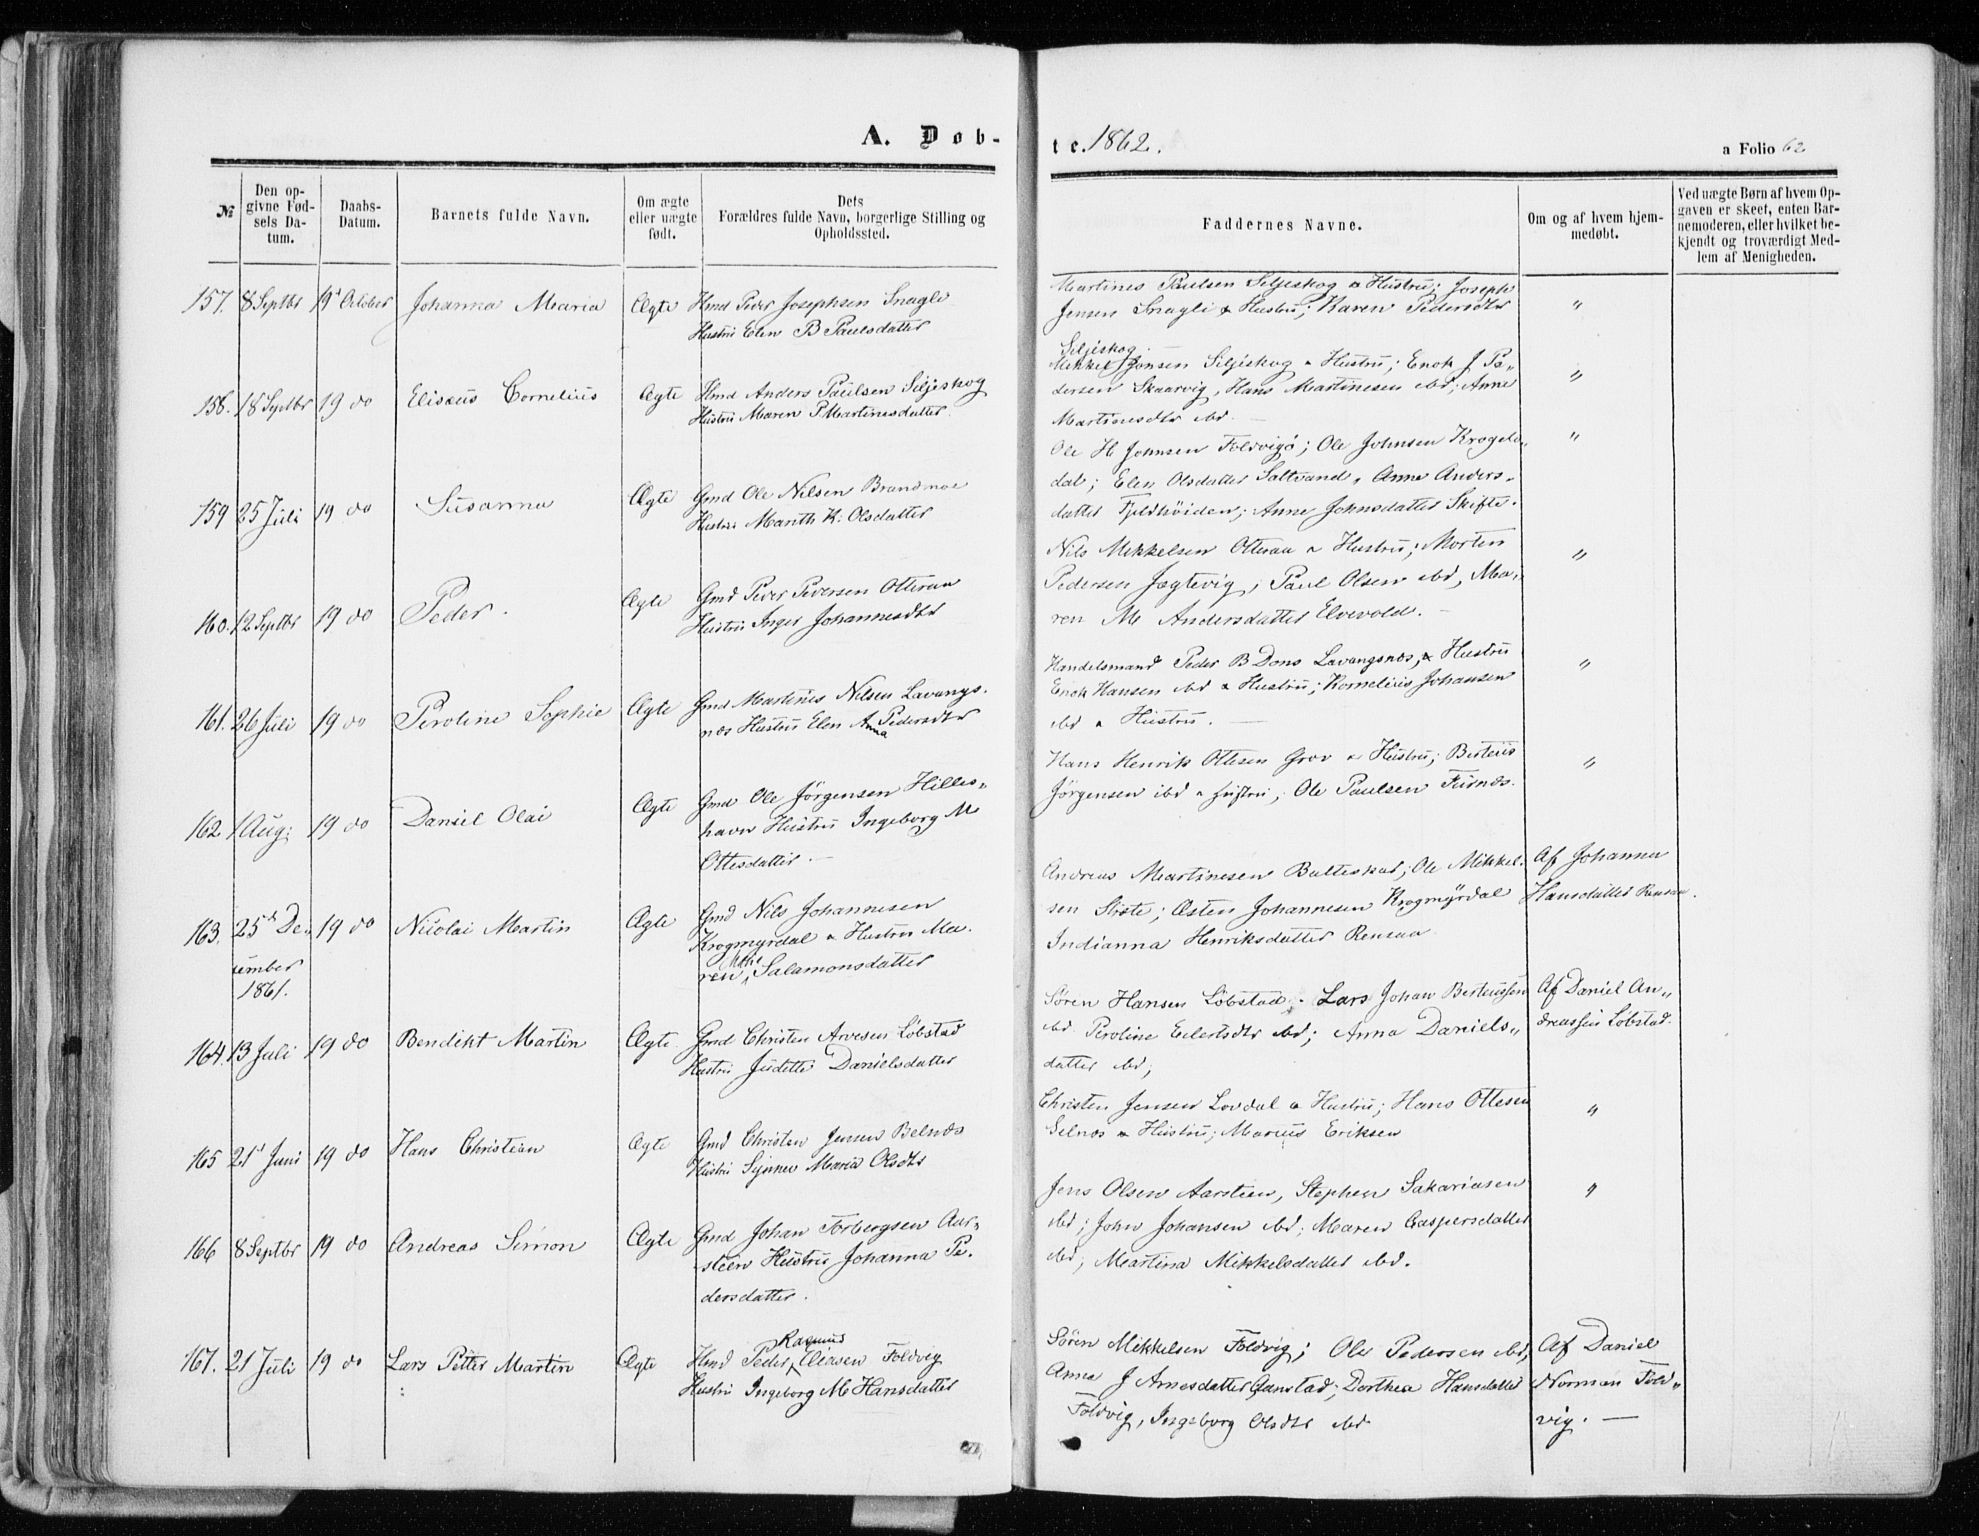 A. Døb-
te. 1862.
a Folio 62
№
Den op-
givne Fød-
sels Da-
tum.
Daabs-
Datum.
Barnets fulde Navn.
Om ægte
eller uægte
født.
Dets
Forældres fulde Navn, borgerlige Stilling og
Opholdssted.
Faddernes Navne.
Om og af hvem hjem-
medøbt.
Ved uægte Børn af hvem Op-
gaven er skeet, enten Bar-
nemoderen, eller hvilket be-
kjendt og troværdigt Med-
lem af Menigheden.
157. 8 Septbr 19d October Johanna Maria Ægte Hmd Peder Josephsen Snagli
Hustru Elen B Paulsdatter
Martines Paulsen Seljeskog & Hustru; Joseph
Jensen Snagli & Hustru; Karen Pedersdtr
Seljeskog. "
158. 18 Septbr 19 do Elisæus Cornelius Ægte Hmd Anders Paulsen Seljeskog
Hustru Maren P Martinesdatter
Mikkel Jonsen Seljeskog & Hustru; Enok J Pe„
dersen Skaarvig, Hans Martinesen ibd; Anne
Martinesdtr ibd — "
159 25 Juli 19 do Susanna Ægte Gmd Ole Nilsen Brandmoe
Hustru Marith K: Olsdatter
Ole H Johnsen Foldvigø; Ole Johnsen Krogel„
dal; Elen Olsdatter Saltvand, Anne Anders„
datter Fjeldhöiden; Anne Johnsdatter Skifte. "
160. 12 Septbr 19 do Peder. Ægte Gmd Peder Pedersen Otteraa
Hustru Inger Johannesdtr
Nils Mikkelsen Otteraa & Hustru; Morten
Pedersen Jægtevig; Paul Olsen ibd, Ma„
ren M Andersdatter Elvevold. — "
161. 26 Juli 19 do Peroline Sophie Ægte Gmd Martinus Nilsen Lavangs-
næs Hustru Elen Anna Pedersdtr
Handelsmand Peder B Dons Lavangsnæs, & Hustru
Enok Hansen ibd & Hustru; Kornelius Johansen
ibd & Hustru. — "
162 1 Aug: 19 do Daniel Olai Ægte Gmd Ole Jörgensen Hilles„
havn Hustru Ingeborg M
Ottesdatter. —
Hans Henrik Ottesen Grov & Hustru; Berteus
Jörgensen ibd & Hustru; Ole Paulsen Furnæs. "
163. 25de De-
cember
1861. 19 do Nicolai Martin Ægte Gmd Nils Johannesen
Krogmyrdal & Hustru Ma-
ren Salamonsdatter
Andreas Martinesen Balteskar; Ole Mikkel-
sen Skifte; Østen Johannesen Krogmyrdal
Indianna Henriksdatter Rensaa
Af Johanna
Hansdatter Rensaa.
164. 13 Juli 19 do Bendikt Martin Ægte Gmd Christen Arvesen Löbstad
Hustru Judette Danielsdatter
Sören Hansen Löbstad. Lars Johan Berteussen
ibd. Peroline Eilertsdtr ibd; Anna Daniels„
datter ibd;
Af Daniel An„
dreassen Löbstad.
165 21d Juni 19 do Hans Christian Ægte Gmd Christen Jensen Selnæs
Hustru Synnev Maria Olsdtr
Christen Jensen Lovdal & Hustru; Hans Ottesen
Selnæs & Hustru; Marius Eriksen "
166 8 Septbr 19 do Andreas Simon Ægte Gmd Johan Torbergsen Aar„
steen Hustru Johanna Pe-
dersdatter.
Jens Olsen Aarsteen, Stephen Sakariasen
ibd; John Johansen ibd; Maren Caspersdatter
ibd; Martina Mikkelsdatter ibd. "
167. 21 Juli 19 do Lars Petter Martin Ægte Hmd Peder Rasmus Eliasen Foldvig
Hustru Ingeborg M Hansdatter
Sören Mikkelsen Foldvig; Ole Pedersen ibd;
Anna J Arnesdatter Ganstad; Dorthea Hansdatter
Foldvig, Ingeborg Olsdtr ibd
Af Daniel
Norman Fold„
vig. —